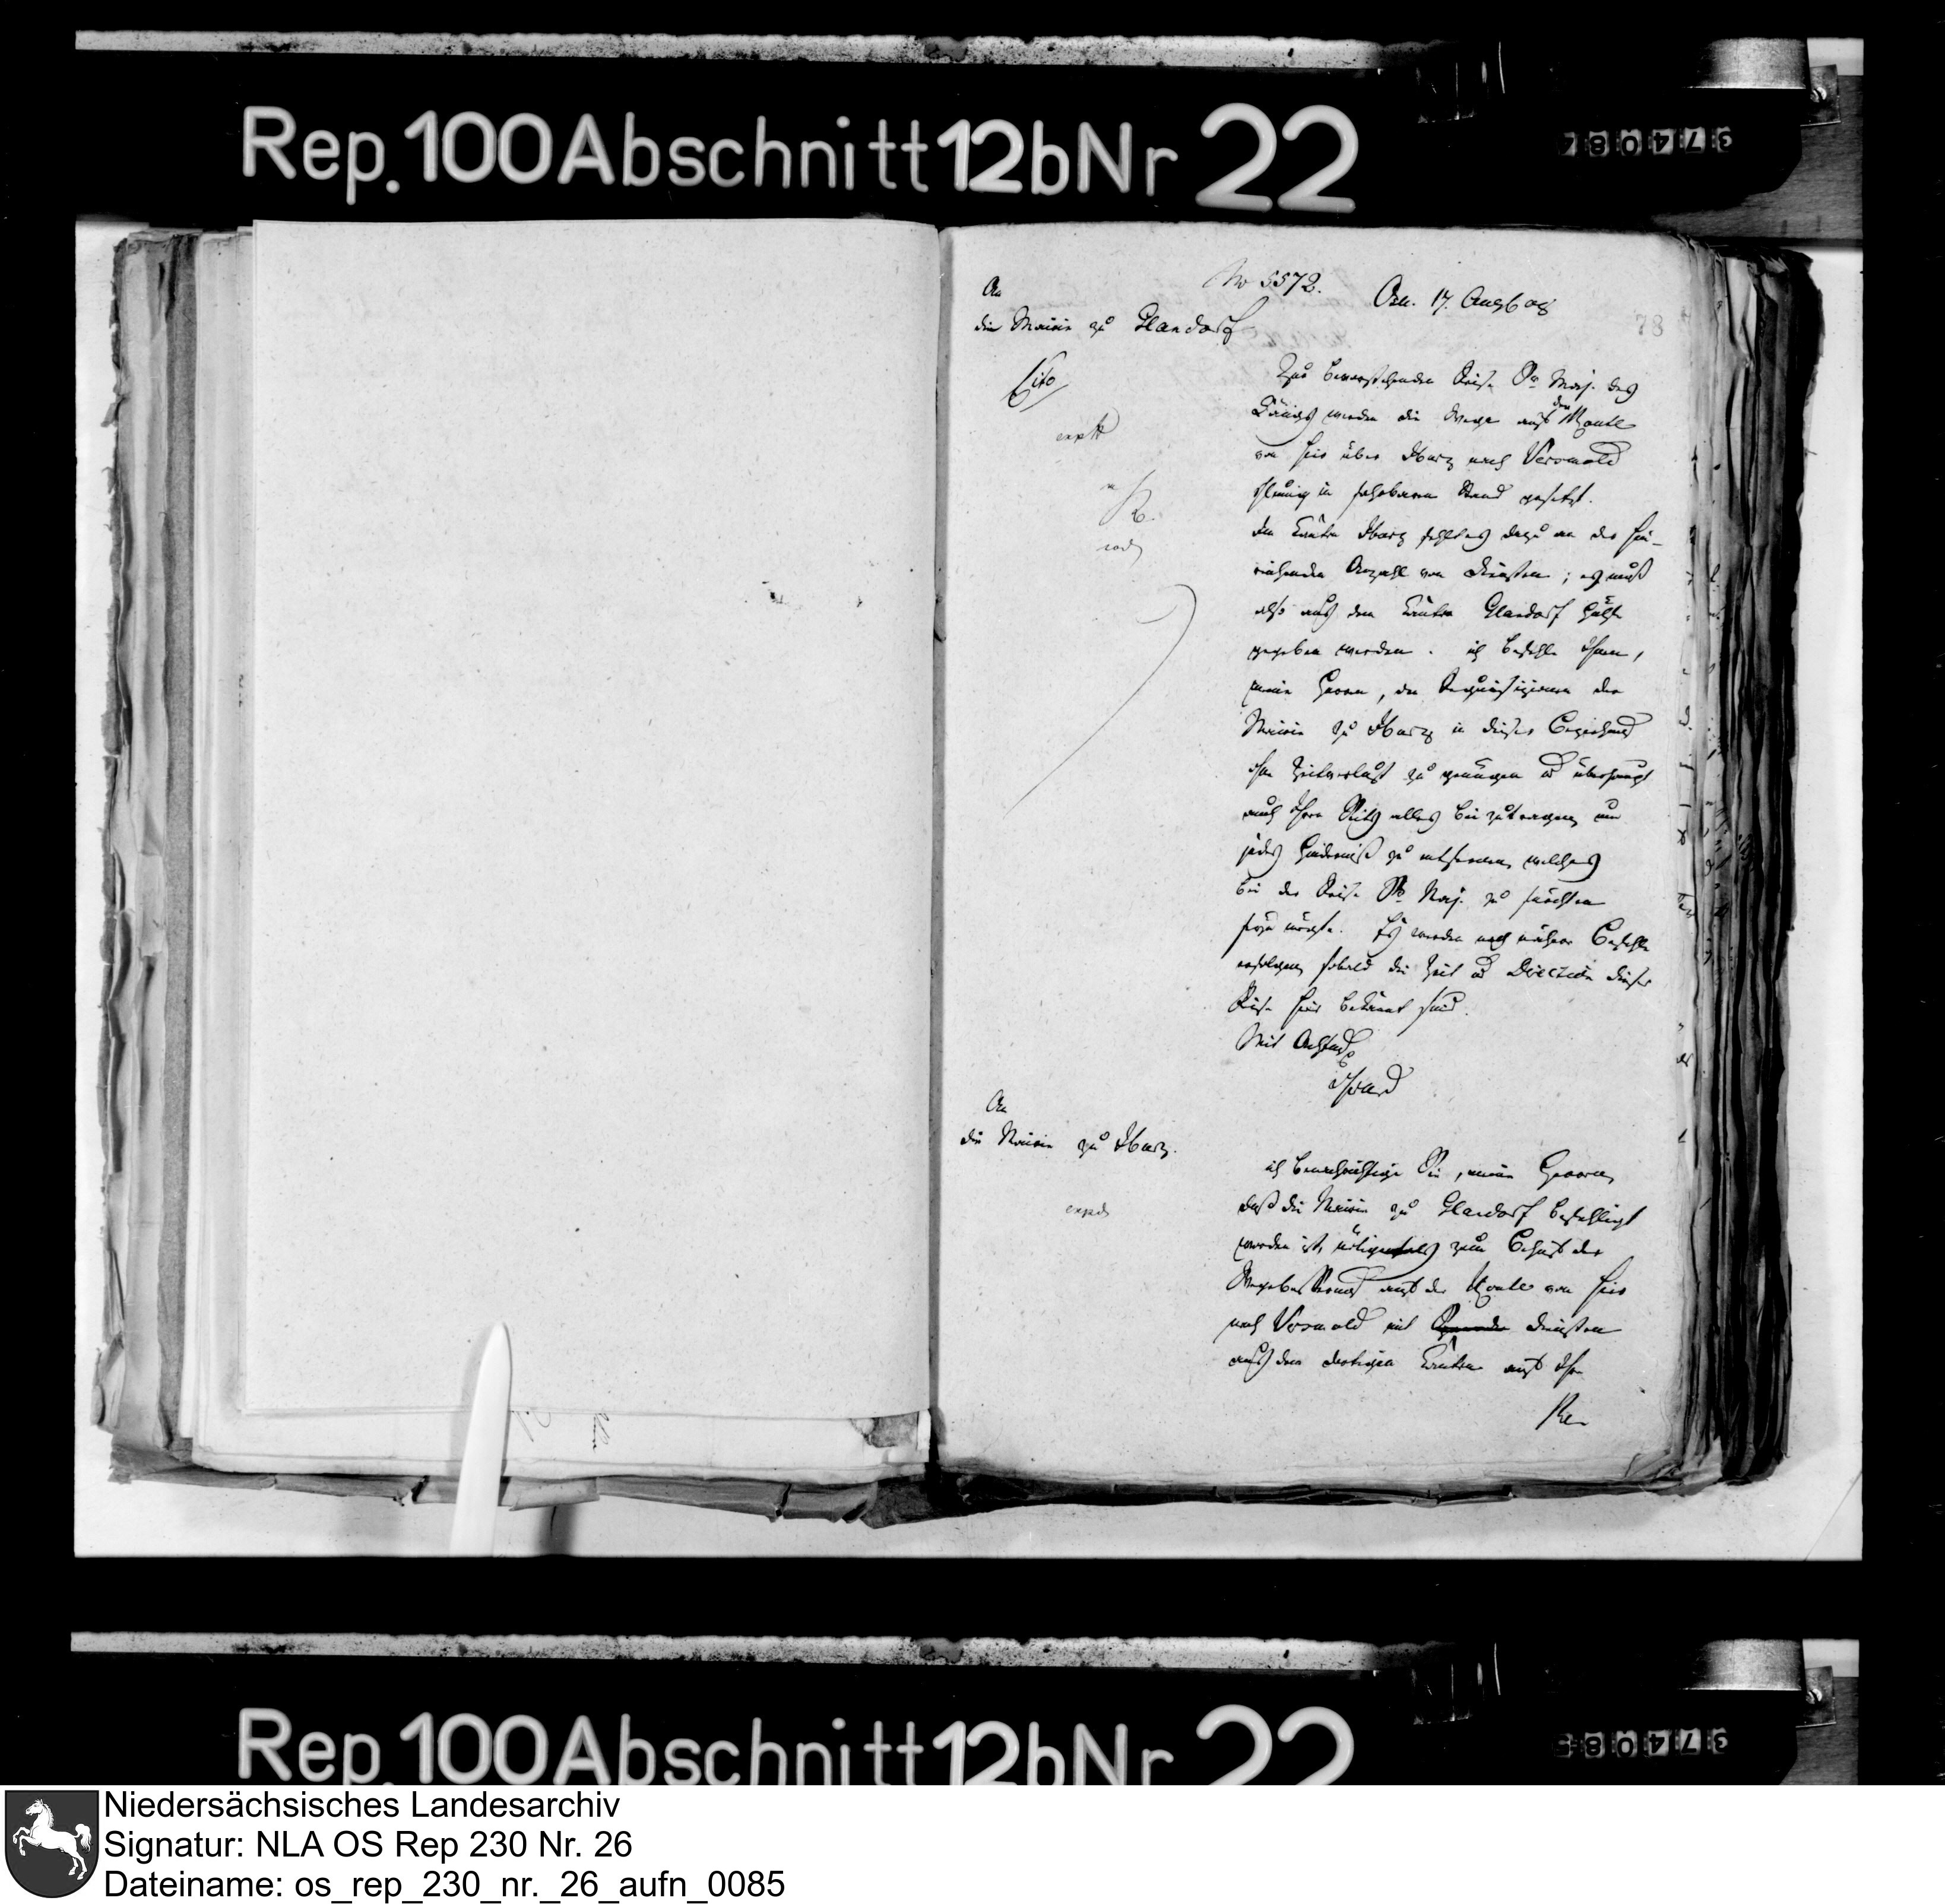 Rep. 100 Abschnitt 12b Nr 22
37408
No 5572.
Osn. 17. Aug 608
78
An
die Mairie zu Glandorf
Cito
Zur bevorstehenden Reise Sr Maj. des
Königs werden die Wege auf der Route
von hier über Iburg nach Versmold
schleunig in fahrbaren Stand gesetzt.
Im Canton Iburg fehlt es dazu an der hin-
reichenden Anzahl von Diensten; es muß
also aus dem Canton Glandorf Hülfe
gegeben werden. ich befehle Ihnen,
meine Herren, den Requisizionen der
Mairie zu Iburg in dieser Beziehung
ohne Zeitverlust zu genügen und überhaupt
auch Ihrer Seits alles beizutragen um
jedes Hinderniß zu entfernen, welches
bei der Reise Sr Maj. zu fürchten
seyn mögte. Es werden noch nähere Befehle
erfolgen, sobald die Zeit und Direction dieser
Reise hier bekannt sind.
Mit Achtung
An
die Mairie zu Iburg.
ich benachrichtige Sie, meine Herren,
daß die Mairie zu Glandorf befehligt
worden ist, nötigenfalls zum Behuf der
Wegebesserung auf der Route von hier
nach Versmold mit Diensten
aus dem dortigen Canton auf Ihre
Re-
Rep. 100 Abschnitt 12b Nr 22
37408
Niedersächsisches Landesarchiv
Signatur: NLA OS Rep 230 Nr. 26
Dateiname: os_rep_230_nr._26_aufn_0085